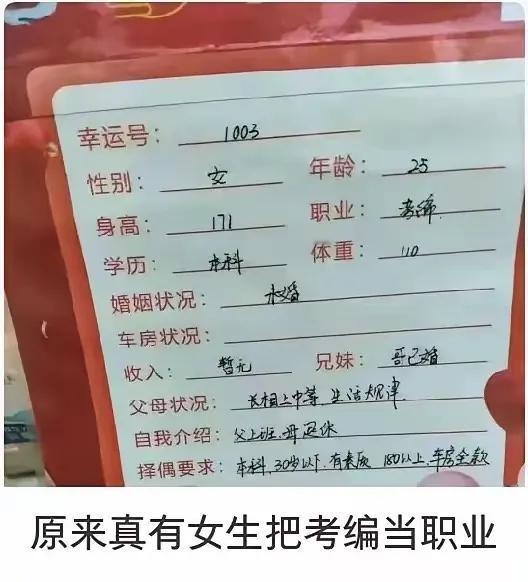 幸运号: 1003
性别: 女 年龄: 25
身高: 171 职业: 考编
学历: 本科 体重: 110
婚姻状况: 未婚
车房状况:
收入: 暂无 兄妹: 哥已婚
父母状况: 长相上中等、生活规律
自我介绍: 父上班、母退休
择偶要求: 本科、30岁以下、有素质 180以上、车房全款
原来真有女生把考编当职业